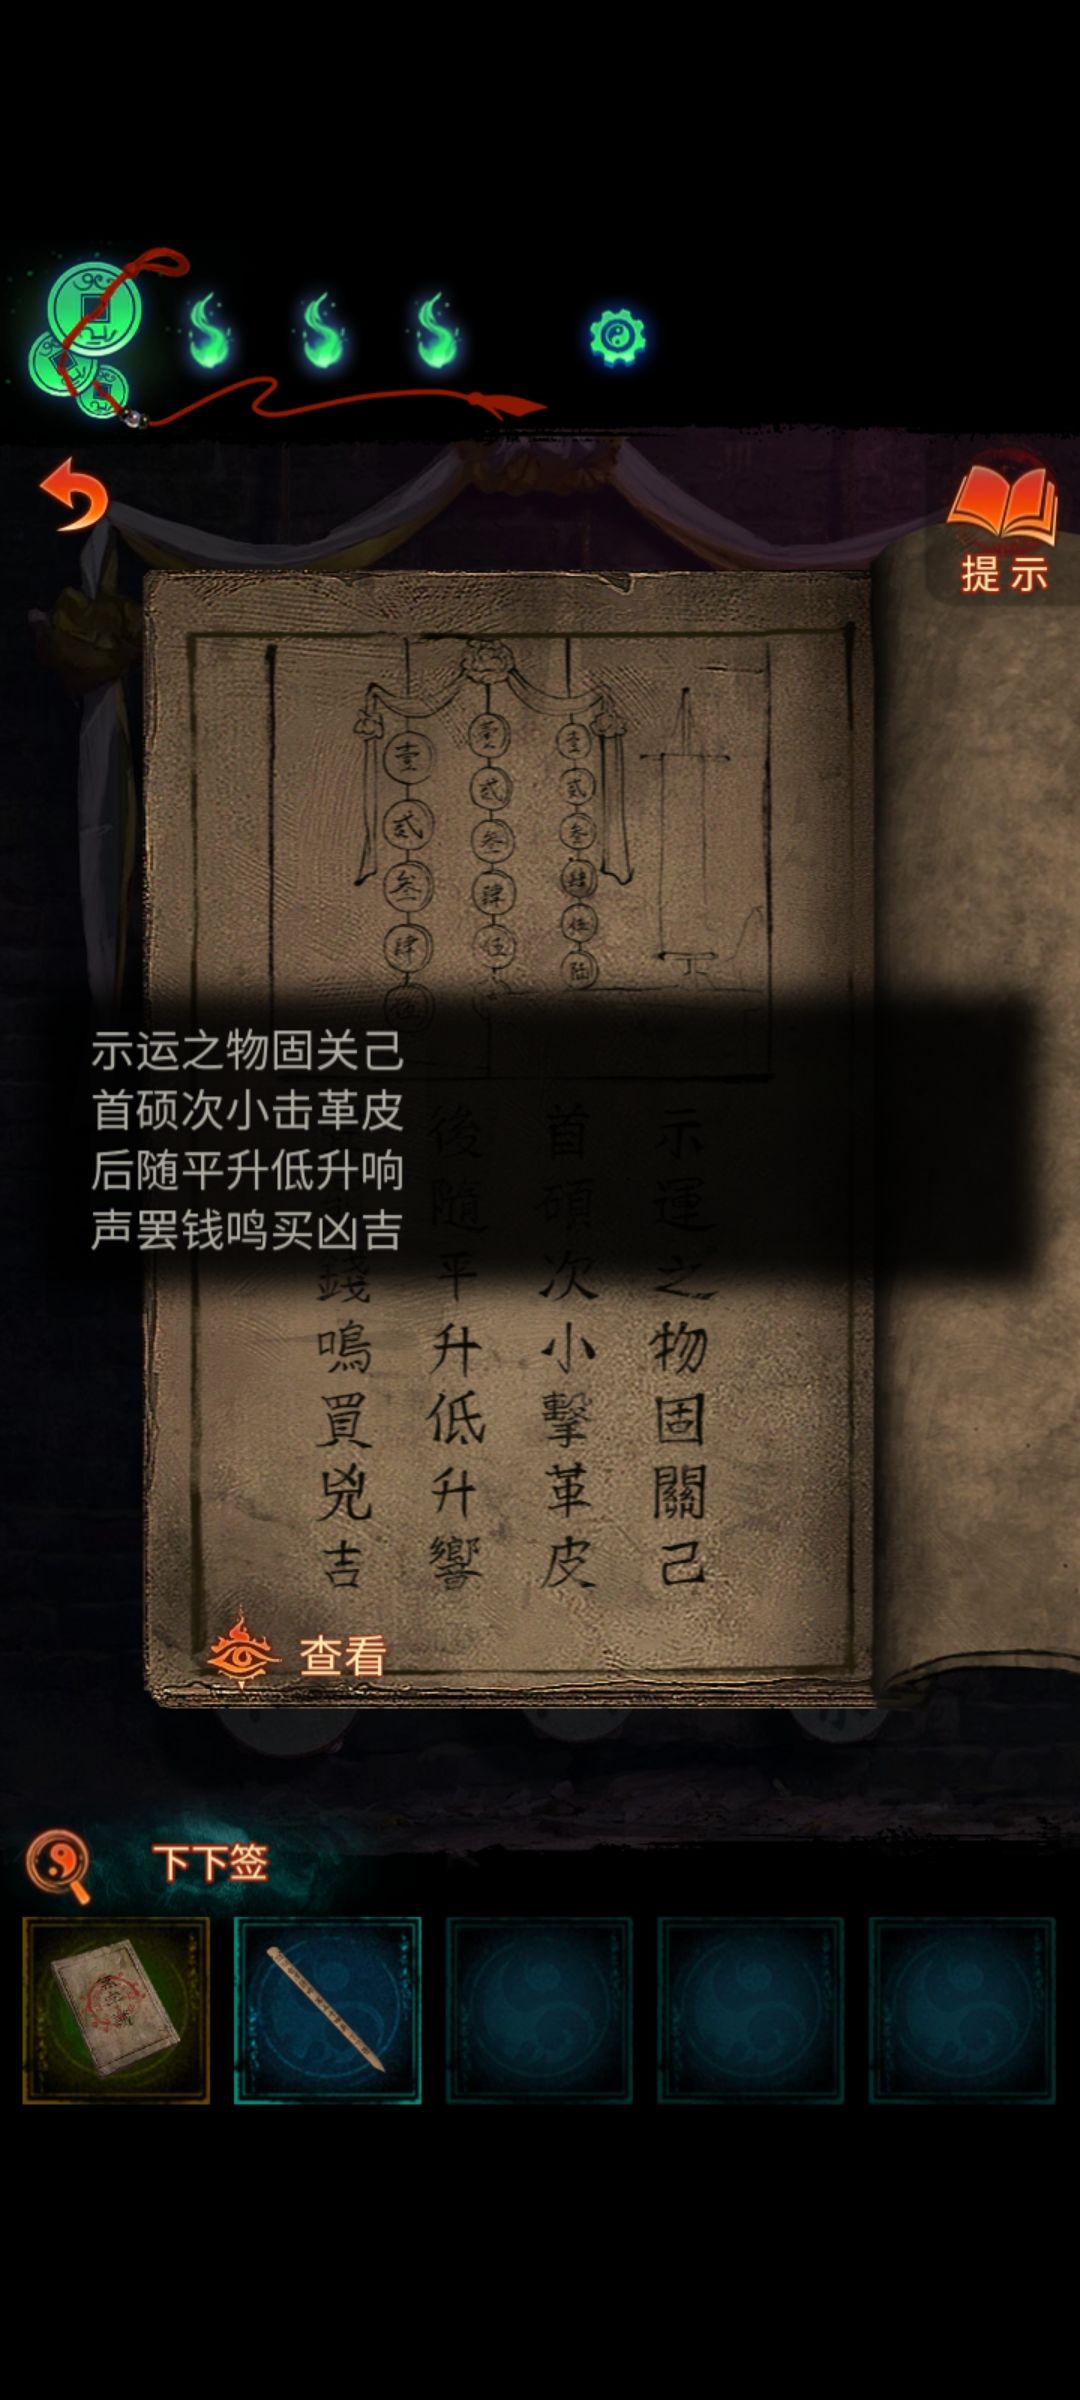 提示
壹
贰
叁
肆
壹
贰
叁
肆
伍
壹
贰
叁
肆
伍
陆
示运之物固关己
首硕次小击革皮
后随平升低升响
声罢钱鸣买凶吉
示運之物固關己
首碩次小擊革皮
後隨平升低升響
錢鳴買兇吉
查看
下下签